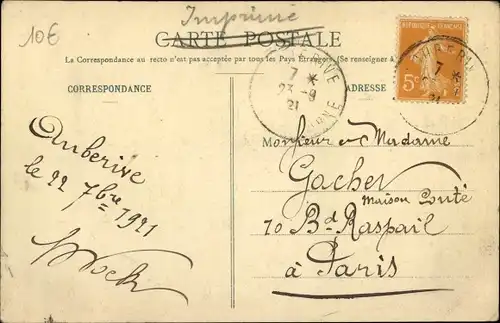 10€
Imprimé
CARTE POSTALE
La Correspondance au recto n'est pas acceptée par tous les Pays Étrangers (Se renseigner à
CORRESPONDANCE
ADRESSE
7 *
23-9
21
5c
Auberive
le 22 7bre 1921
Monsieur et Madame
Gacher
Maison
70 Bd Raspail
à Paris